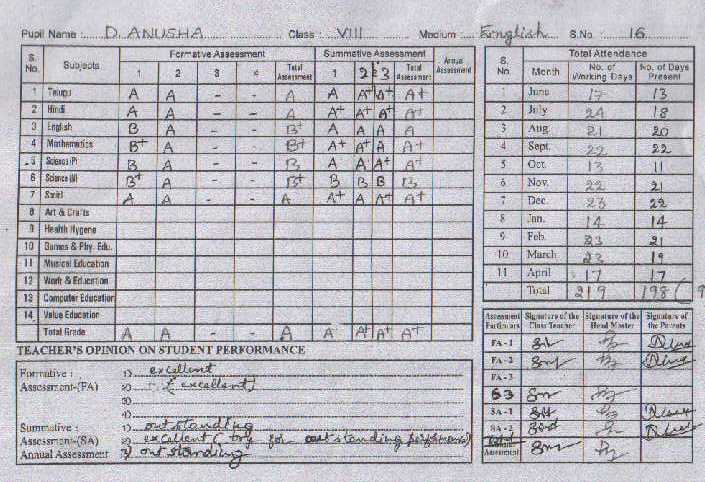 Pupil Name D. ANUSHA Class VIII Medium English S.No. 16
S. No. Subjects Formative Assessment Summative Assessment Annual Assessment
1 2 3 4 Total Assessment 1 2 3 Total Assessment
1 Telugu A A - - A A A+ A+ A+
2 Hindi A A - - A A+ A+ A+ A+
3 English B A - - B+ A A A A
4 Mathematics B+ A - - B+ A+ A+ A A+
5 Science (P) B A - - B A A A+ A+
6 Science (B) B+ A - - B+ B B B B
7 Social A A - - A A+ A A+ A+
8 Art & Crafts
9 Health Hygene
10 Games & Phy. Edu.
11 Musical Education
12 Work & Education
13 Computer Education
14 Value Education
Total Grade A A - - A A A+ A+ A+
S. No. Total Attendance
Month No. of Working Days No. of Days Present
1 June 17 13
2 July 24 18
3 Aug. 21 20
4 Sept. 22 22
5 Oct. 13 11
6 Nov. 22 21
7 Dec. 23 22
8 Jan. 14 14
9 Feb. 23 21
10 March 23 19
11 April 17 17
Total 219 198 (9
Assessment Particulars Signature of the Class Teacher Signature of the Head Master Signature of the Parents
FA - 1
FA - 2
FA - 3
S3
SA - 1
SA - 2
Assessment
TEACHER'S OPINION ON STUDENT PERFORMANCE
Formative : 1) excellent
Assessment-(FA) 2) (excellent)
3)
4)
Summative : 1) outstanding
Assessment-(SA) 2) excellent (try for outstanding performance)
Annual Assessment 3) outstanding